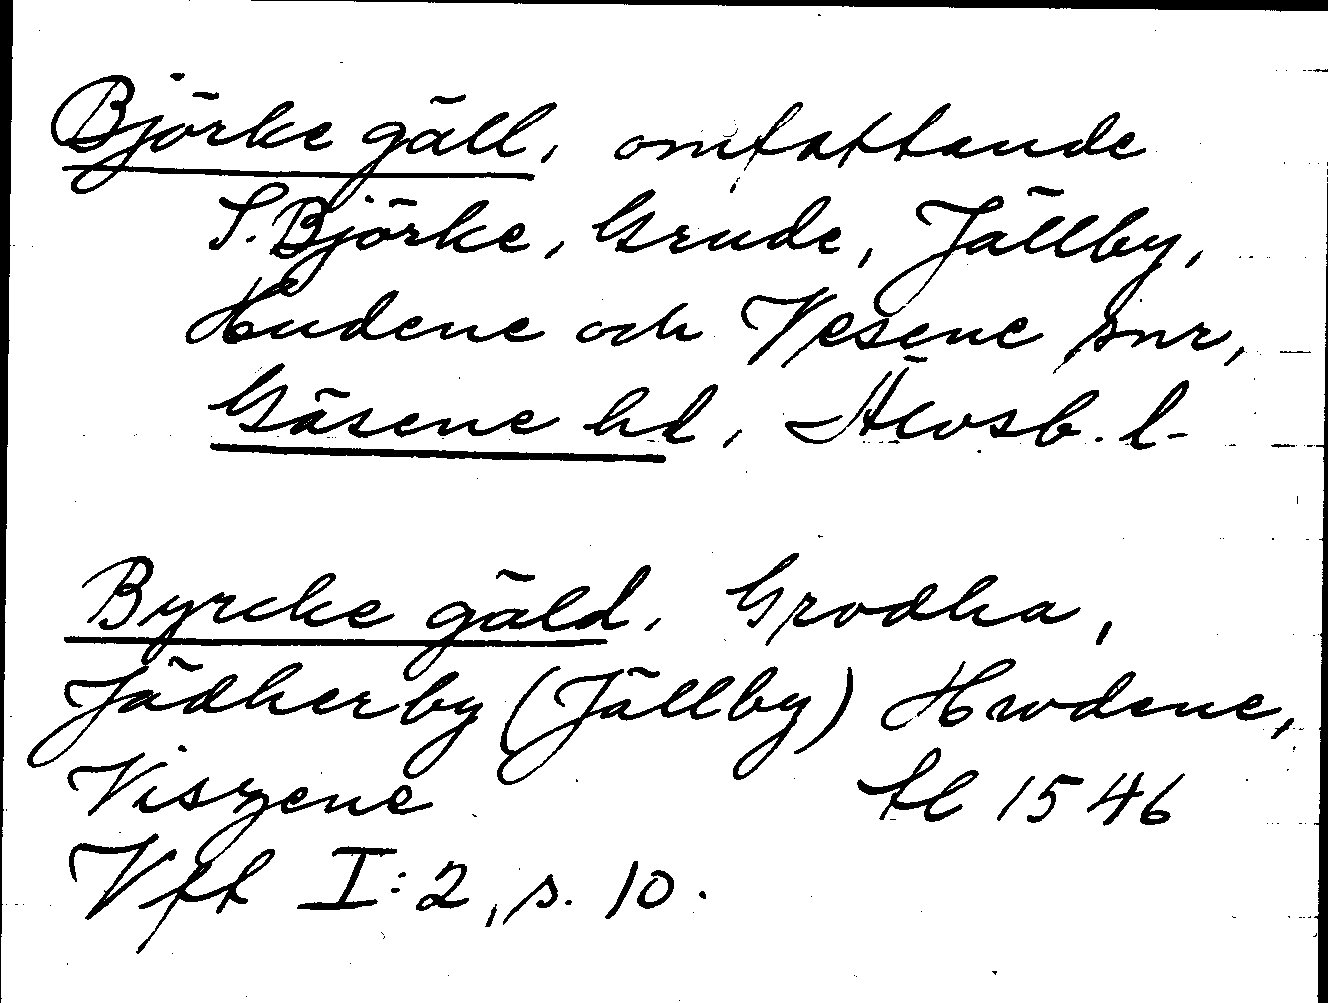 Björke gäll, omfattande
S. Björke, Grude, Jällby,
Hudene och Vesene snr,
Gäsene hd, Älvsb. l.
Byrcke gäld. Grodha,
Jädherby (Jällby) Hwdene,
Viszene tl 1546
Vft I:2, s. 10.